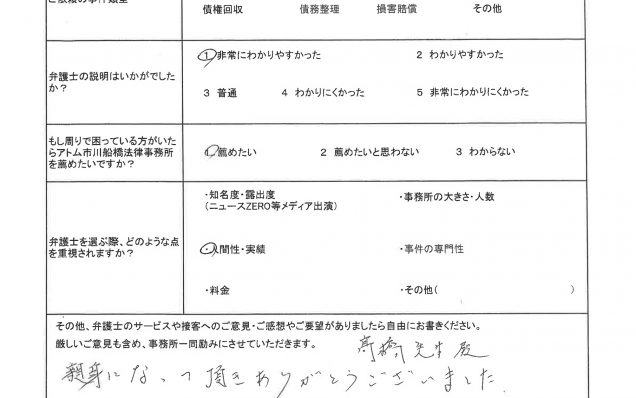 ご依頼の事件類型
債権回収 債務整理 損害賠償 その他
弁護士の説明はいかがでした
か?
1 非常にわかりやすかった 2 わかりやすかった
3 普通 4 わかりにくかった 5 非常にわかりにくかった
もし周りで困っている方がいた
らアトム市川船橋法律事務所
を薦めたいですか?
1 薦めたい 2 薦めたいと思わない 3 わからない
弁護士を選ぶ際、どのような点
を重視されますか?
・知名度・露出度
(ニュースZERO等メディア出演)
・事務所の大きさ・人数
・人間性・実績
・事件の専門性
・料金
・その他( )
その他、弁護士のサービスや接客へのご意見・ご感想やご要望がありましたら自由にお書きください。
厳しいご意見も含め、事務所一同励みにさせていただきます。
髙橋先生殿
親身になって頂きありがとうございました。